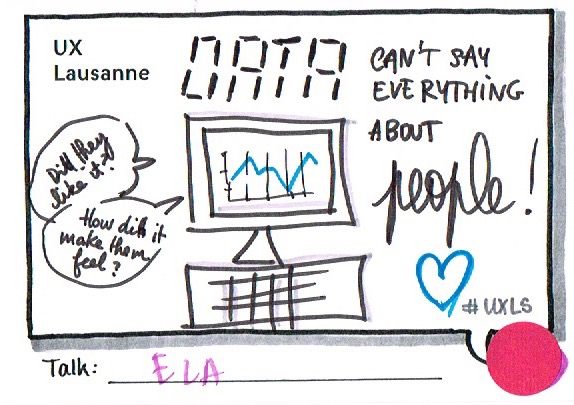 UX
Lausanne
DATA
CAN'T SAY
EVERYTHING
ABOUT
people!
Did they
like it?
How did it
make them
feel?
#UXLS
Talk: ELA